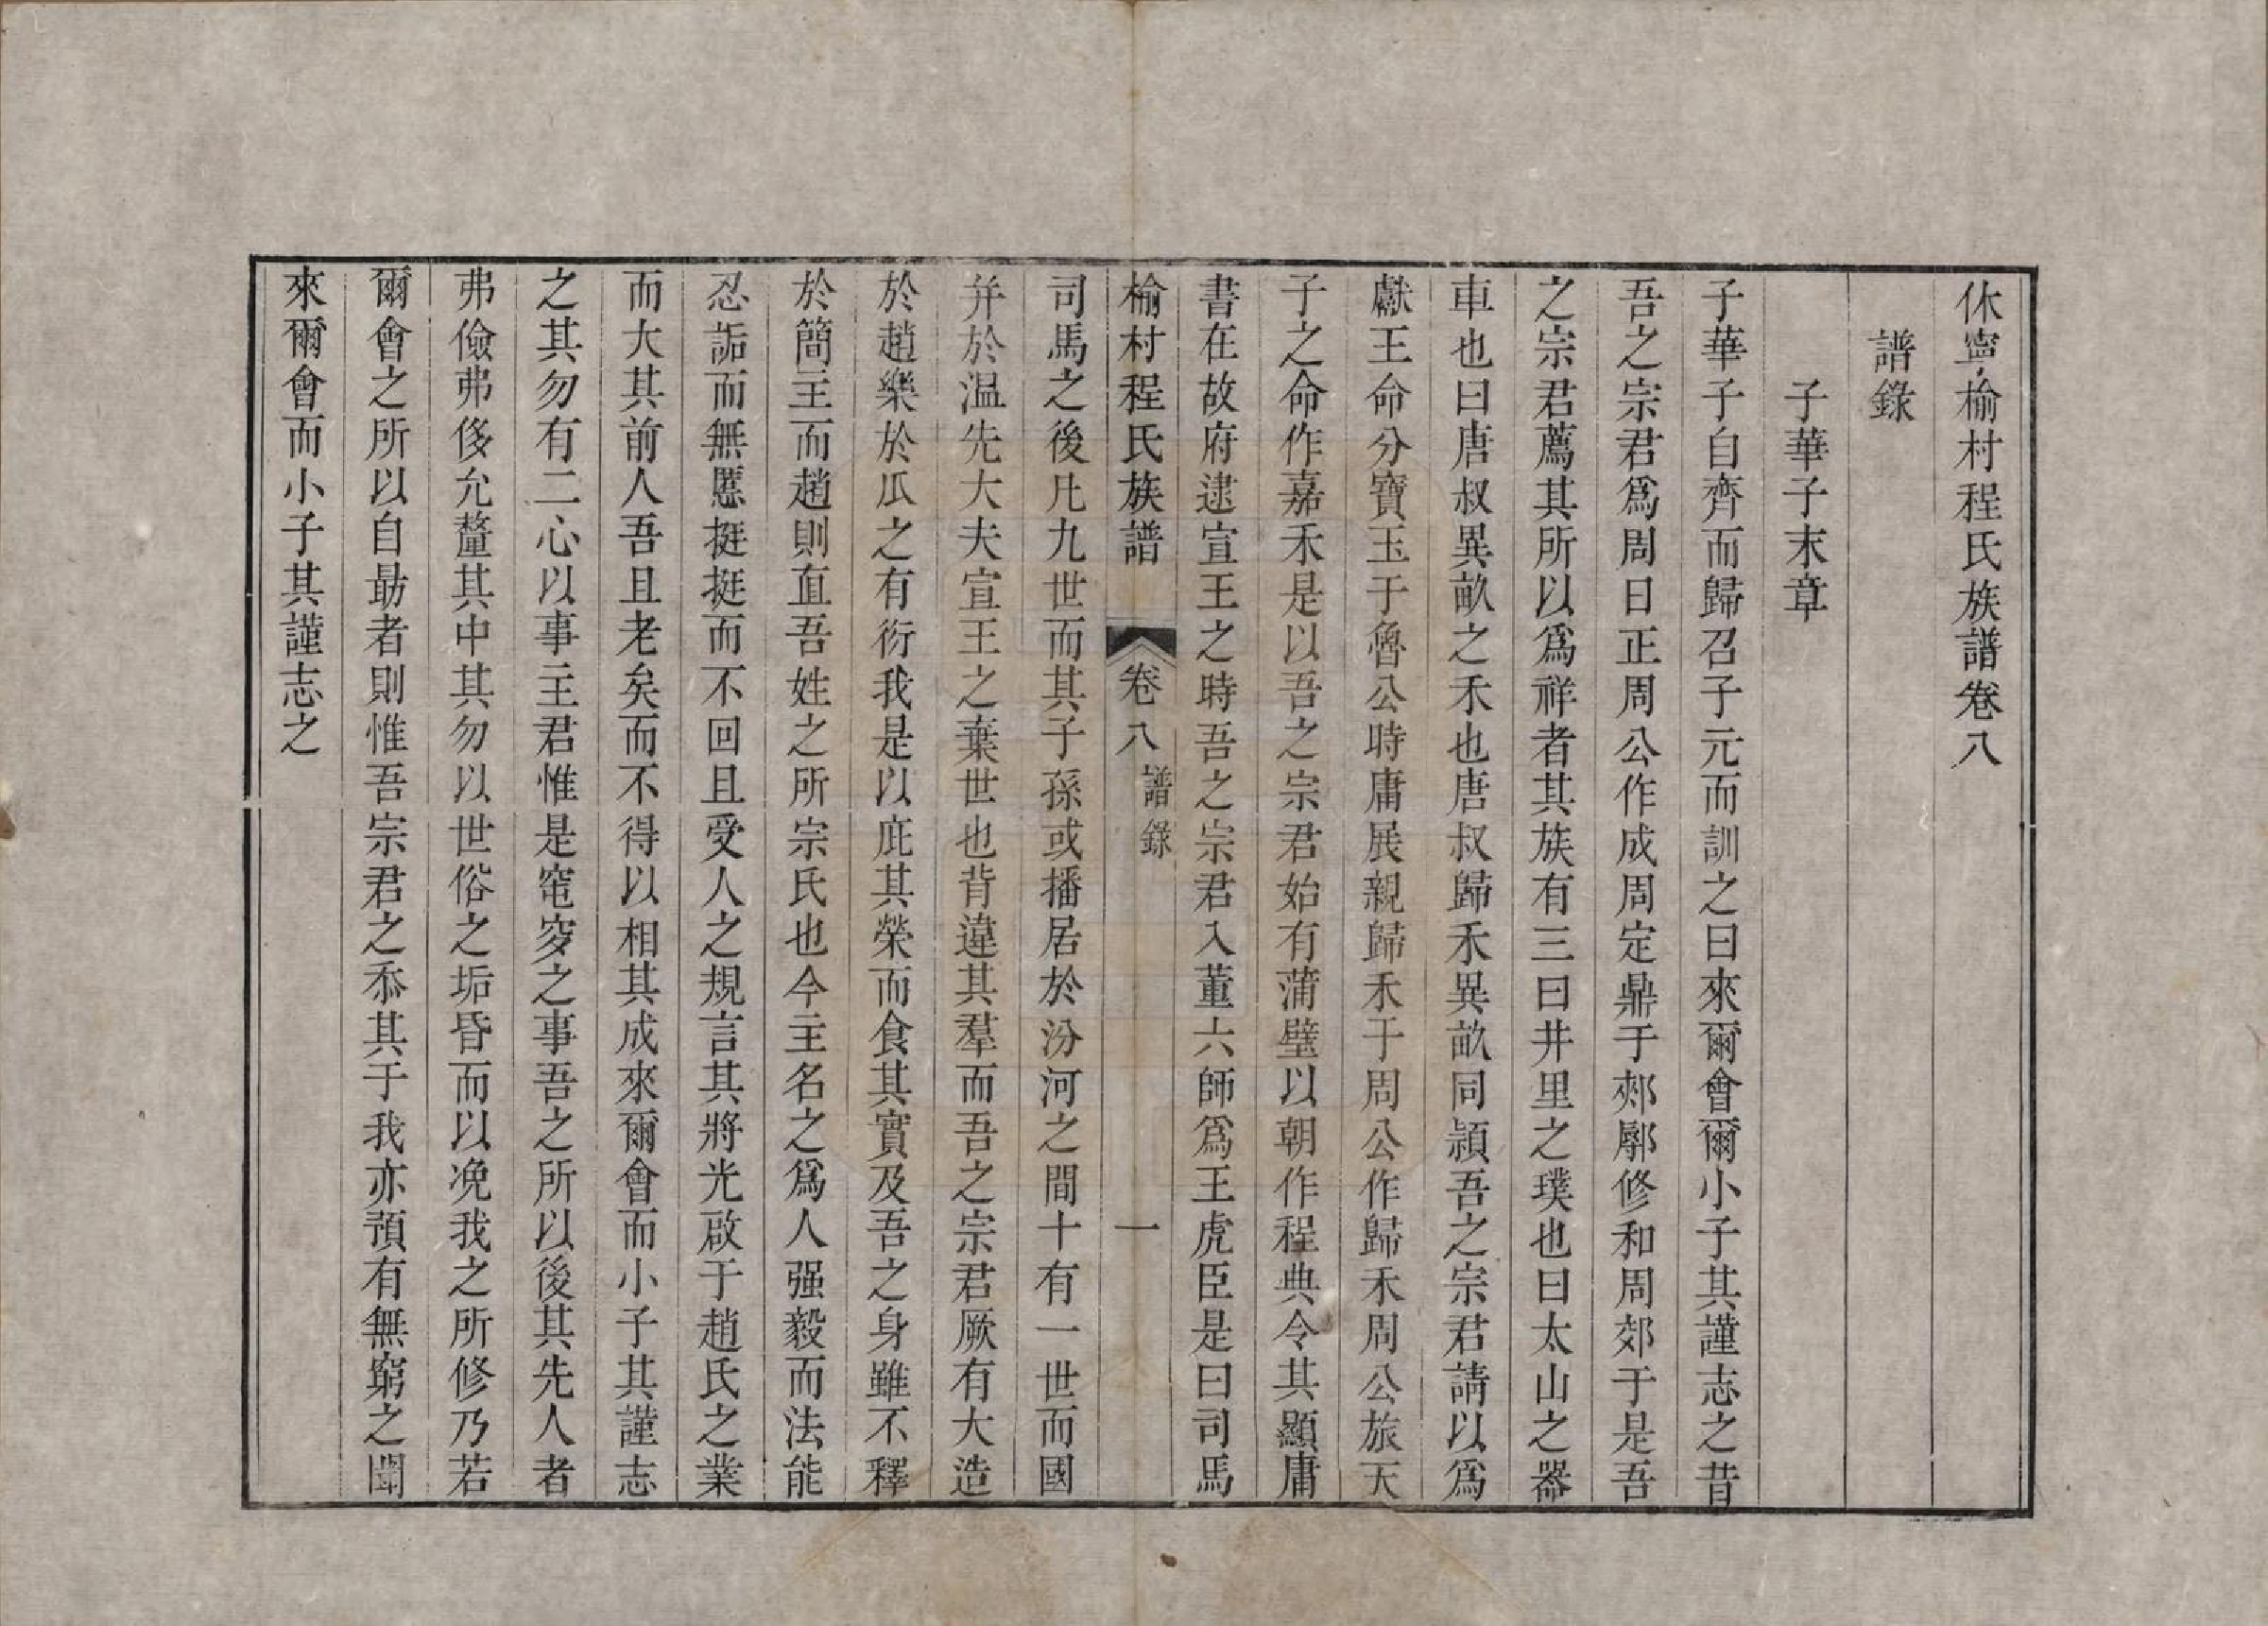 休寧榆村程氏族譜卷八
譜錄
子華子末章
子華子自齊而歸召子元而訓之曰來爾會爾小子其謹志之昔
吾之宗君爲周日正周公作成周定鼎于郟鄏修和周郊于是吾
之宗君薦其所以爲祥者其族有三曰井里之璞也曰太山之器
車也曰唐叔異畝之禾也唐叔歸禾異畝同穎吾之宗君請以爲
獻王命分寶玉于魯公時庸展親歸禾于周公作歸禾周公旅天
子之命作嘉禾是以吾之宗君始有蒲璧以朝作程典令其顯庸
書在故府逮宣王之時吾之宗君入董六師爲王虎臣是曰司馬
榆村程氏族譜 卷八 譜錄 一
司馬之後凡九世而其子孫或播居於汾河之間十有一世而國
幷於溫先大夫宣王之棄世也背違其羣而吾之宗君厥有大造
於趙樂於瓜之有衍我是以庇其榮而食其實及吾之身雖不釋
於簡主而趙則直吾姓之所宗氏也今主名之爲人强毅而法能
忍詬而無慝挺挺而不回且受人之規言其將光啟于趙氏之業
而大其前人吾且老矣而不得以相其成來爾會而小子其謹志
之其勿有二心以事主君惟是窀穸之事吾之所以後其先人者
弗儉弗侈允釐其中其勿以世俗之垢昏而以浼我之所修乃若
爾會之所以自勗者則惟吾宗君之忝其于我亦預有無窮之聞
來爾會而小子其謹志之